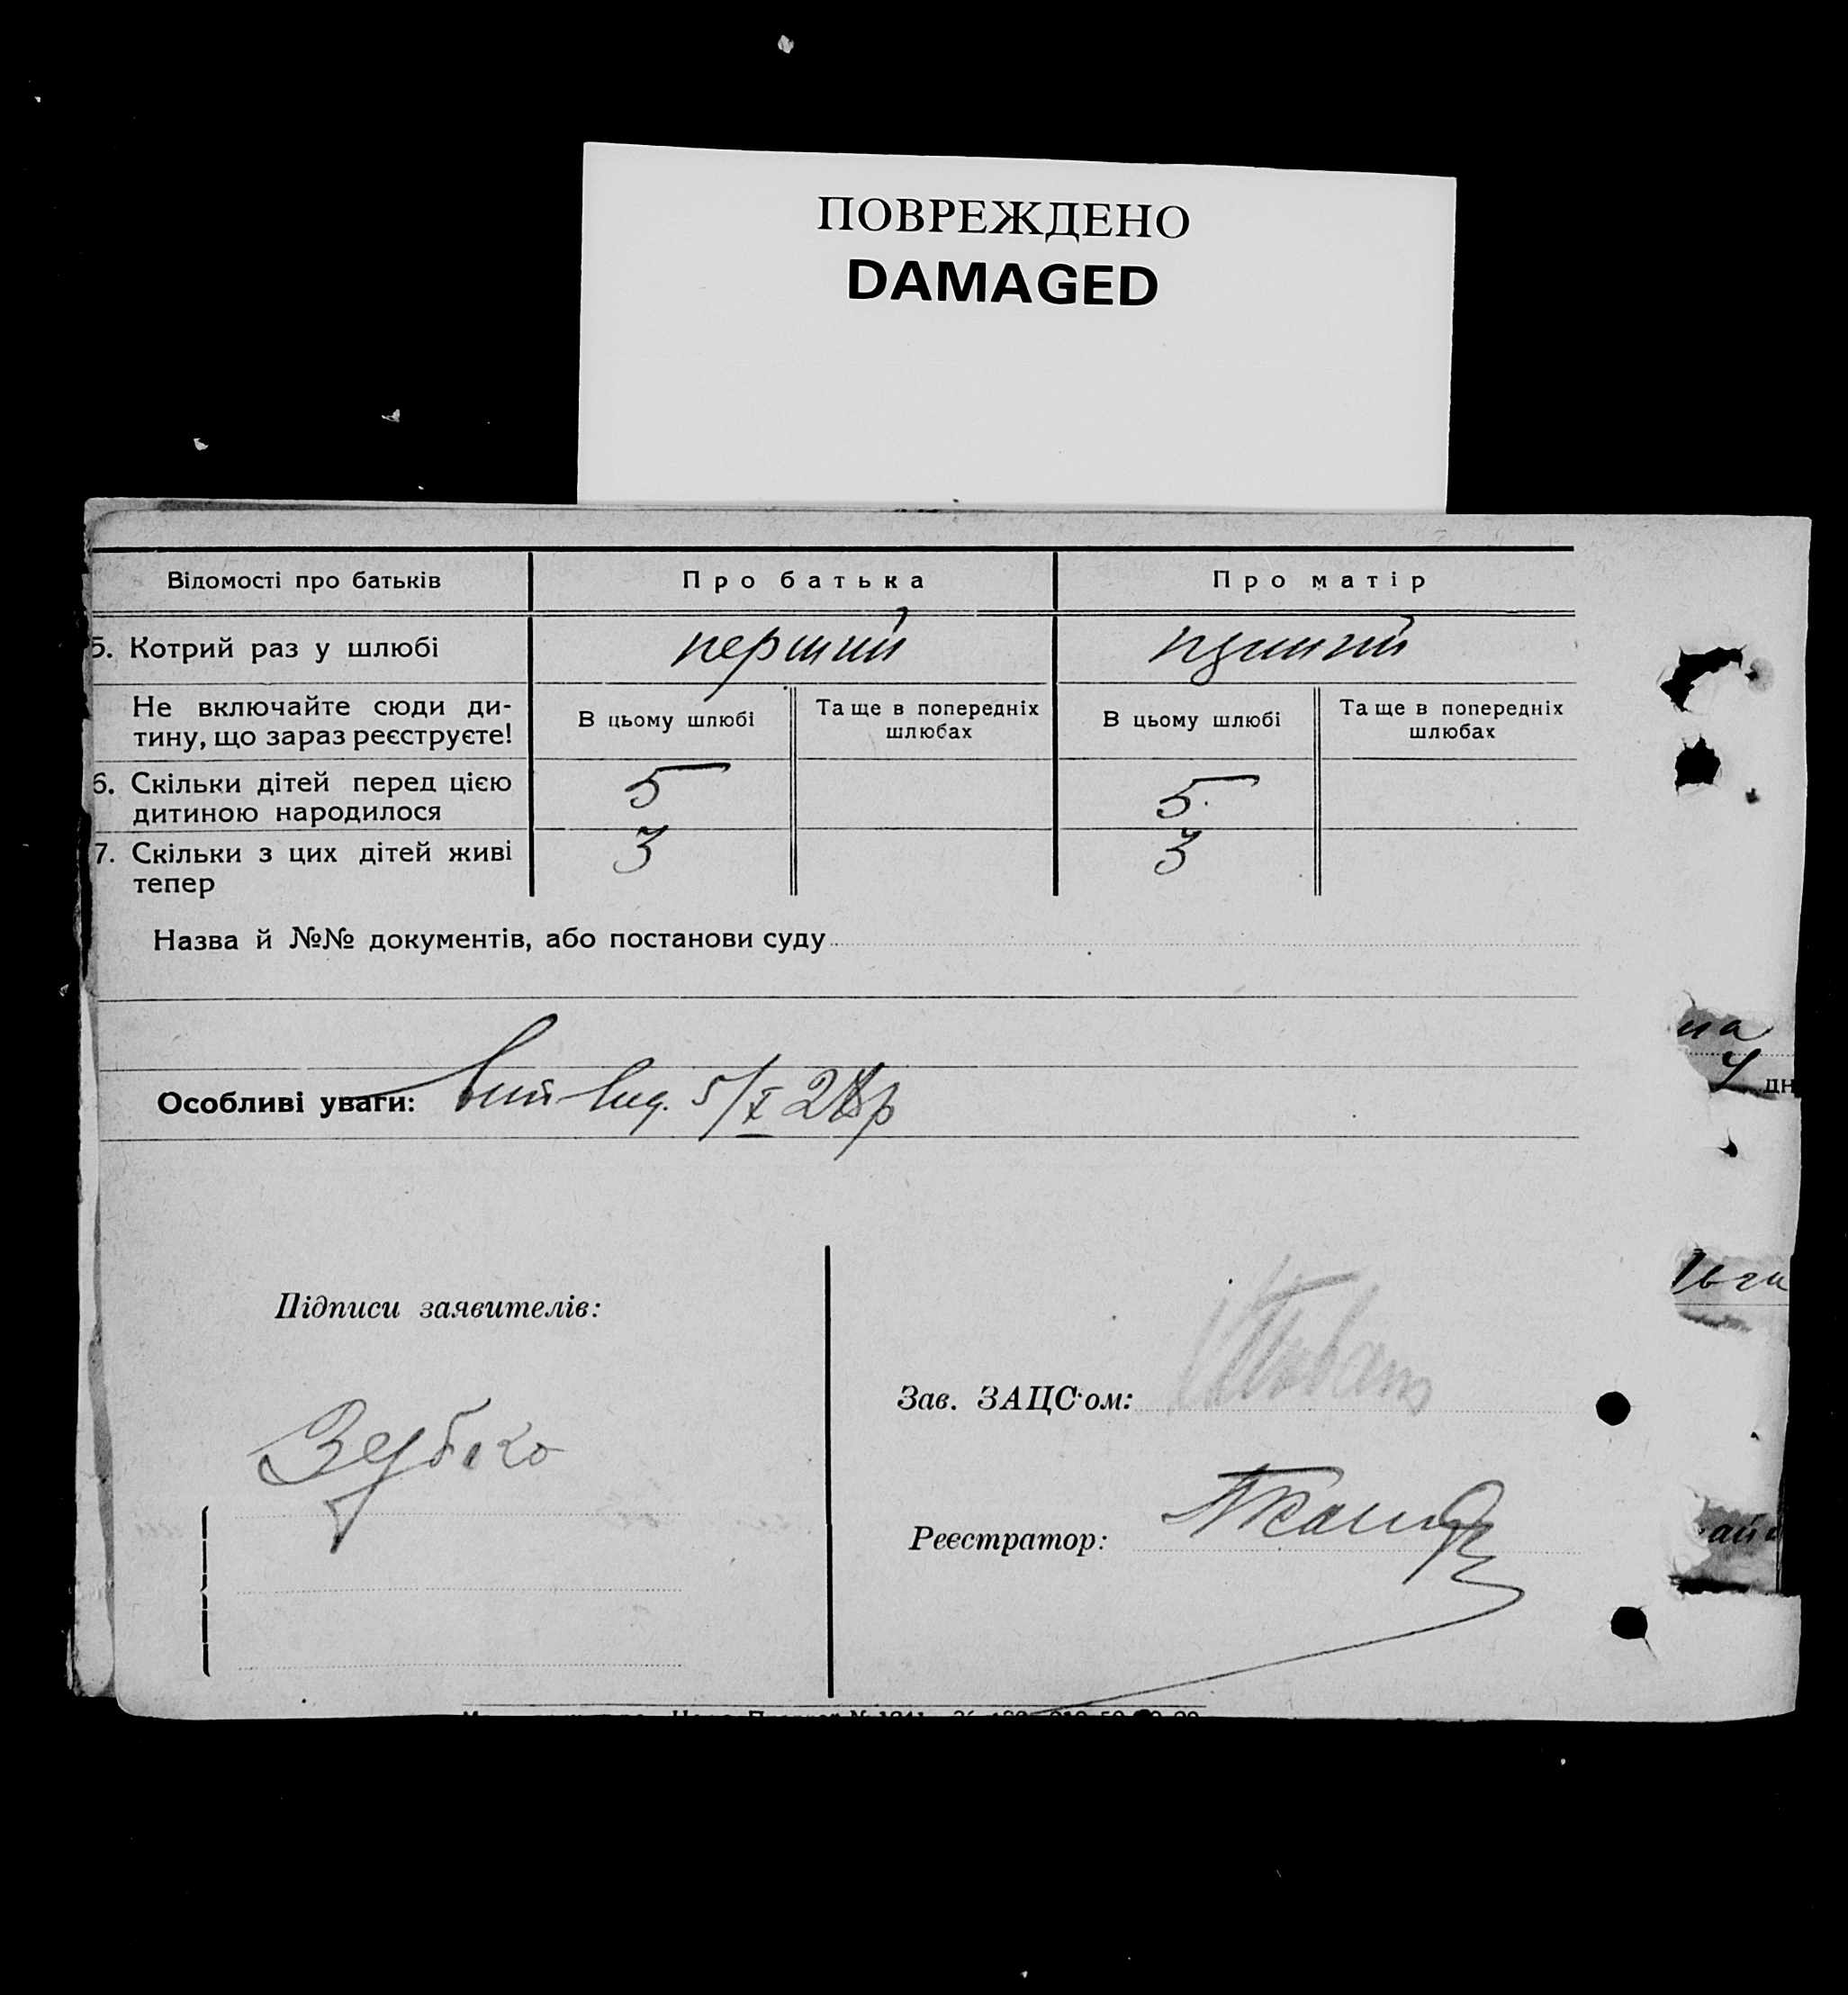 ПОВРЕЖДЕНО
DAMAGED
Відомості про батьків
Про батька
Про матір
5. Котрий раз у шлюбі
перший
перший
Не включайте сюди ди-
тину, що зараз реєструєте!
В цьому шлюбі
Та ще в попередніх
шлюбах
В цьому шлюбі
Та ще в попередніх
шлюбах
6. Скільки дітей перед цією
дитиною народилося
5
5
7. Скільки з цих дітей живі
тепер
3
3
Назва й №№ документів, або постанови суду
Особливі уваги:
5/X 28р
на
дн
Підписи заявителів:
Зубко
Зав. ЗАЦС'ом:
Реєстратор: